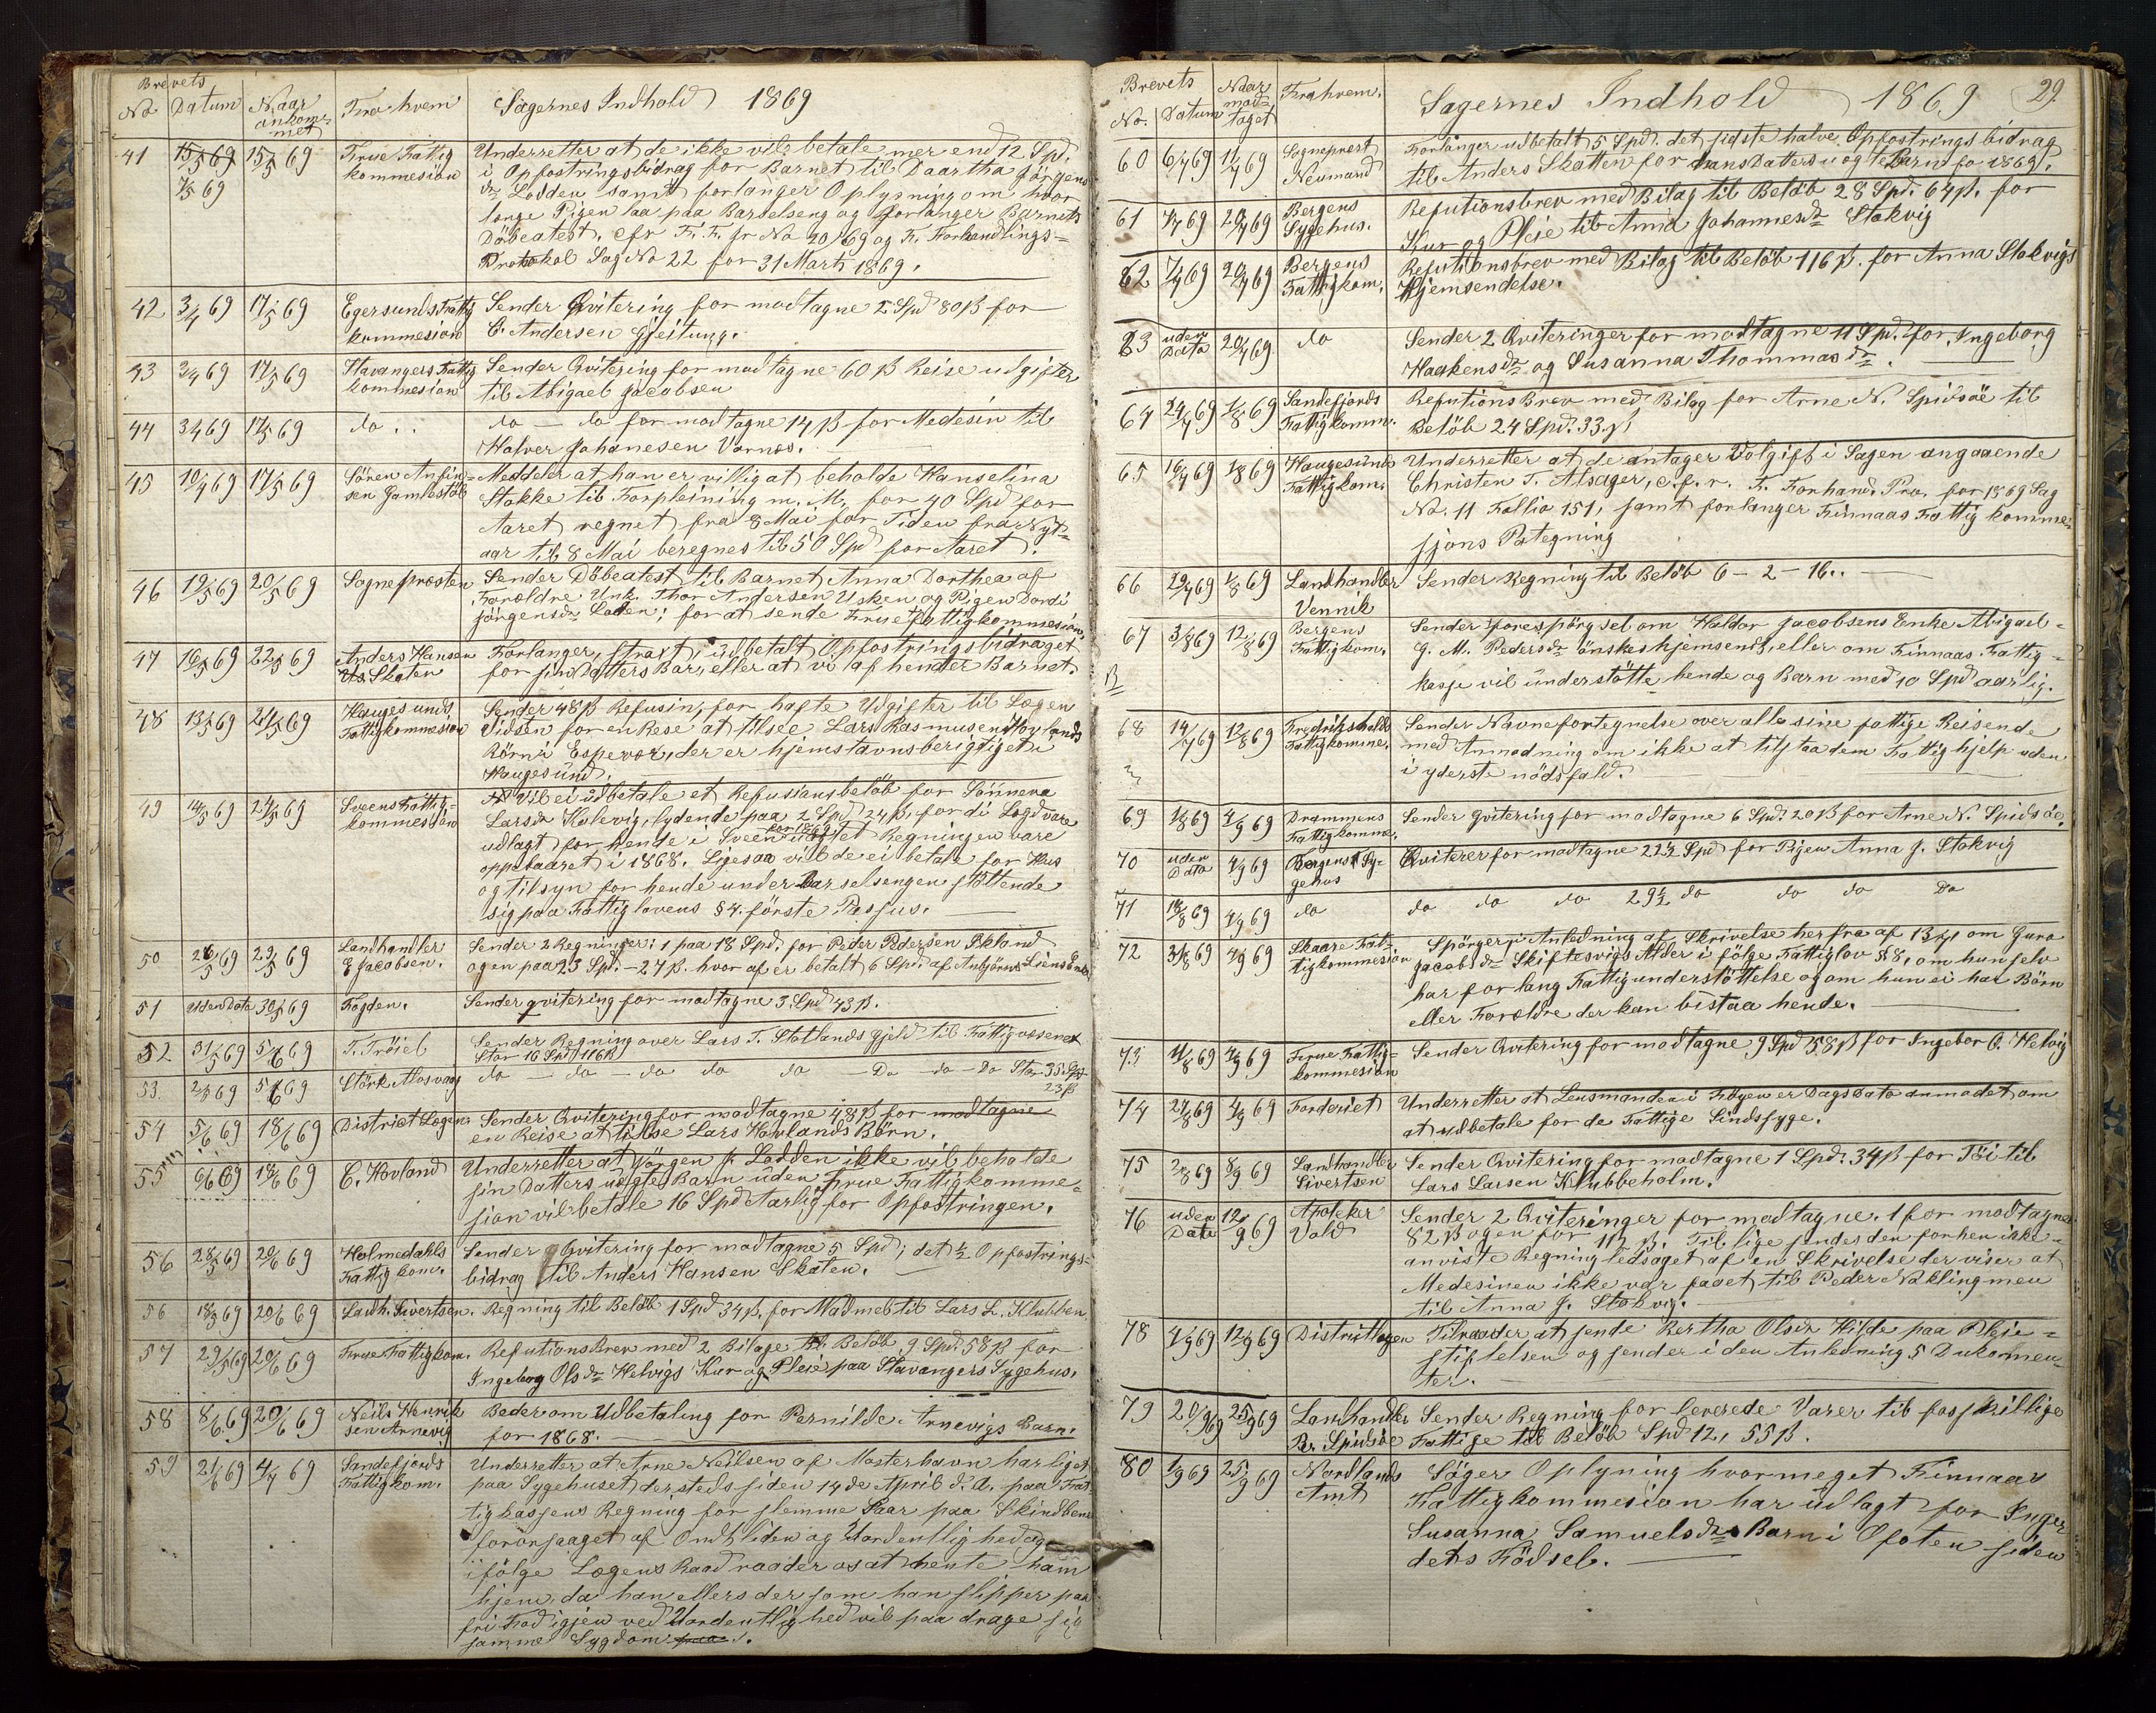 Brevets
No Datum Naar ankommet Fra hvem Sagernes Indhold 1869
41 15/5 69 15/5 69 Finne Fattig Underretter at de ikke vil betale mer end 12 Spd.
7/5 69 kommesion i Opfostringsbidrag for Barnet til Daartha Jörgens
dr Lodden samt forlanger Oplysning om hvor
længe Pigen laa paa Barselseng og forlanger Barnets
Döbeatest, cfr F. K. jr No 20/69 og F. Forhandlings-
Protokol Sag No 22 for 31 Marts 1869.
42 3/4 69 17/5 69 Egersunds Fattig Sender Qvitering for modtagne 2 Spd 80 ß for
kommesion C. Andersen Gjeitung.
43 3/4 69 17/5 69 Stavangers Fattig Sender Qvitering for modtagne 60 ß Reise udgifter
kommesion til Abigael Jacobsen
44 3/4 69 17/5 69 do . . do — do for modtagne 14 ß for Medesin til
Halver Johanesen Vornes.
45 10/4 69 17/5 69 Sören Anfin- Meddeler at han er villig at beholde Hanselina
sen Gamlestöl Stokke til Forpleining m. M. for 40 Spd for
Aaret regnet fra 8 Mai for Tiden fra Nyt-
aar til 8 Mai beregnes til 50 Spd for Aaret.
46 19/5 69 20/5 69 Sognepresten Sender Döbeatest til Barnet Anna Dorthea af
Foreldre Unk. Thor Andersen Usken og Pigen Dordi
Jörgensdr Loden; for at sende Finne Fattigkommesion.
47 16/5 69 22/5 69 Anders Hansen Forlanger, straxt, udbetalt Opfostringsbidraget
Us. Skaten for sin Datters Barn, eller at vi af henter Barnet.
48 13/5 69 24/5 69 Haugesunds Sender 48 ß Refusin, for hafte Udgifter til Lægen
Fattigkommesion Vidsten for en Rese at tilsee Lars Rasmusen Hovlands
Börn i Espevær, der er hjemstavnsberigtiget i
Haugesund.
49 14/5 69 24/5 69 Sveens Fattig- Vil ei udbetale et Refusionsbelöb for Sönneva
kommesion Larsdr Kolevig, lydende paa 2 Spd 24 ß, fordi Logd være
udlagt for hende i Sveen for 1869 Regningen være
oppebaaret i 1868. Ligesaa vil de ei betale for Hus
og tilsyn for hende under Barselsengen stöttende
sig paa Fattiglovens § 4. förste Passus.
50 26/5 69 29/5 69 Landhandler Sender 2 Regninger: 1 paa 18 Spd. for Peder Pedersen Økland
E Jacobsen. og en paa 23 Spd. — 27 ß. hvor af er betalt 6 Spd. af Anbjörns Liens Enke
51 Uden Data 30/5 69 Fogden. Sender qvitering for modtagne 3 Spd 43 ß.
52 31/5 69 5/6 69 T. Tröiel Sender Regning over Lars T. Stotlands gjeld til Fattigvæsenet
Stor 16 Spd 116 ß
53. 2/6 69 5/6 69 Störk Mosvaag do — do — do do do — Do do — Do Stor 35 Spd
23 ß
54 5/6 69 18/6 69 District Lægen Sender Qvitering for modtagne 48 ß for modtagne
en Reise at tilse Lars Hovlands Börn.
55 9/6 69 19/6 69 C. Hovland Underretter at Jörgen Lodden ikke vil beholde
sin Datters uægte Barn uden Finne Fattigkomme-
sion vil betale 16 Spd Aarlig for Opfostringen.
56 28/5 69 20/6 69 Holmedahls Sender Qvitering for modtagne 5 Spd; det ½ Opfostrings-
Fattigkom. bidrag til Anders Hansen Skaten.
56 18/3 69 20/6 69 Landh. Sivertsen. Regning til Belöb 1 Spd 34 ß, for Madmel til Lars L. Klubben
57 29/5 69 20/6 69 Finne Fattigkom. Refutions Brev med 2 Bilage til Belöb 9 Spd. 58 ß for
Ingeborg Olsdr Helvigs Kur og Pleie paa Stavangers Sygehus.
58 8/6 69 20/6 69 Neils Henrik Beder om Udbetaling for Pernilde Arnevigs Barn.
sen Arnevig for 1868.
59 21/6 69 4/7 69 Sandefjords Underretter at Arne Neilsen af Mosterhavn har ligget
Fattigkom. paa Sygehuset dersteds siden 14de April d. A. paa Fat-
tigkassens Regning for slemme Saar paa Skindbene
foroorsaaget af Ondt liden og Uordentlighed og
ifölge Lægens Raad raader os at hente ham
hjem, da han ellers dersom han slipper paa
fri Fod igjen ved Uordentlighed vil paa drage sig
samme Sygdom paa .
Brevets 29.
No. Datum Naar modtaget Fra hvem. Sagernes Indhold 1869
60 6/7 69 11/7 69 Sogneprest Forlanger udbetalt 5 Spd. det sidste halve Opfostringsbidrag
Neumand til Anders Skatten for hans Datters uægte Barn for 1869.
61 7/7 69 20/7 69 Bergens Refutionsbrev med Bilag til Belöb 28 Spd. 64 ß. for
Sygehus. Kur og Pleie til Anna Johannesdr Stokvig
62 7/7 69 20/7 69 Bergens Refutionsbrev med Bilag til Belöb 116 ß. for Anna Stokvigs
Fattigkom. Hjemsendelse.
63 uden Data 20/7 69 do Sender 2 Qviteringer for modtagne 11 Spd. for Ingeborg
Haakensdr og Susanna Thommasdr.
64 24/7 69 1/8 69 Sandefjords Refutions Brev med Bilag for Arne N. Spidsöe til
Fattigkomm. Belöb 24 Spd. 33 ß
65 16/7 69 1/8 69 Haugesunds Underretter at de antager Volgift i Sagen angaaende
Fattigkom. Christen T. Alsager, c.f.r. F. Forhand. Pro. for 1869 Sag
No. 11 Follio 151, samt forlanger Finnaas Fattig komme-
sjons Pategning
66 29/7 69 1/8 69 Landhandler Sender Regning til Belöb 6 — 2 — 16. .
Vennik
67 3/8 69 12/8 69 Bergens Sender forespörgsel om Haldor Jacobsens Enke Abigael
Fattigkom. G. M. Pedersdr önskes hjemsendt, eller om Finnaas Fattig-
kasse vil understötte hende og Barn med 10 Spd aarlig.
68 14/7 69 12/8 69 Fredrikshalds Sender Navnefortegnelse over alle sine fattige Reisende
Fattigkomme. med Anmodning om ikke at tilstaa dem Fattighjelp uden
i yderste nödsfald.
69 1/8 69 4/9 69 Drammens Sender qvitering for modtagne 6 Spd. 20 ß for Arne N. Spidsöe.
Fattigkomme.
70 uden Data 4/9 69 Bergens Sy- Qviterer for modtagne 22½ Spd for Pigen Anna J. Stokvig
gehus
71 18/8 69 4/9 69 do do do do 29½ do do do Do
72 31/8 69 4/9 69 Skaare Fat- Spörger i Anledning af Skrivelse herfra af 13/7 om Guro
tigkommesion Jacobsdr Skiftesvigs Alder i fölge Fattiglov § 8, om hun selv
har forlang Fattigunderstöttelse og om hun ei har Börn
eller Foreldre der kan bistaa hende.
73 11/8 69 4/9 69 Finne Fattig- Sender Qvitering for modtagne 9 Spd 58 ß for Ingebor O. Helvig
kommesion
74 27/8 69 4/9 69 Forderiet Underretter at Lensmanden i Föyen er Dags Dato anmodet om
at udbetale for de Fattige Sindssyge.
75 2/8 69 8/9 69 Landhandler Sender Qvitering for modtagne 1 Spd. 34 ß for Töi til
Sivertsen Lars Larsen Klubbeholm.
76 uden Data 12/9 69 Apoteker Sender 2 Qviteringer for modtagne. 1 for modtagne
Vold 82 ß og en for 112 ß. Tillige sendes den forhen ikke
anviste Regning ledsaget af en Skrivelse der viser at
Medesinen ikke var faaet til Peder Nøkling men
til Anna J. Stokvig.
78 4/9 69 12/9 69 Districtlægen Tilraader at sende Bertha Olsdr Hilde paa Pleie-
stiftelsen og sender i den Anledning 5 Dukomen-
ter.
79 20/9 69 25/9 69 Landhandler Sender Regning for leverede Varer til forskillige
Pr. Spidsöe Fattige til Belöb Spd 12, 55 ß.
80 1/9 69 25/9 69 Nordlands Söger Oplyning hvormeget Finnaas
Amt Fattigkommesion har udlagt for Inger
Susanna Samuelsdrs Barn i Ofoten siden
dets Födsel.